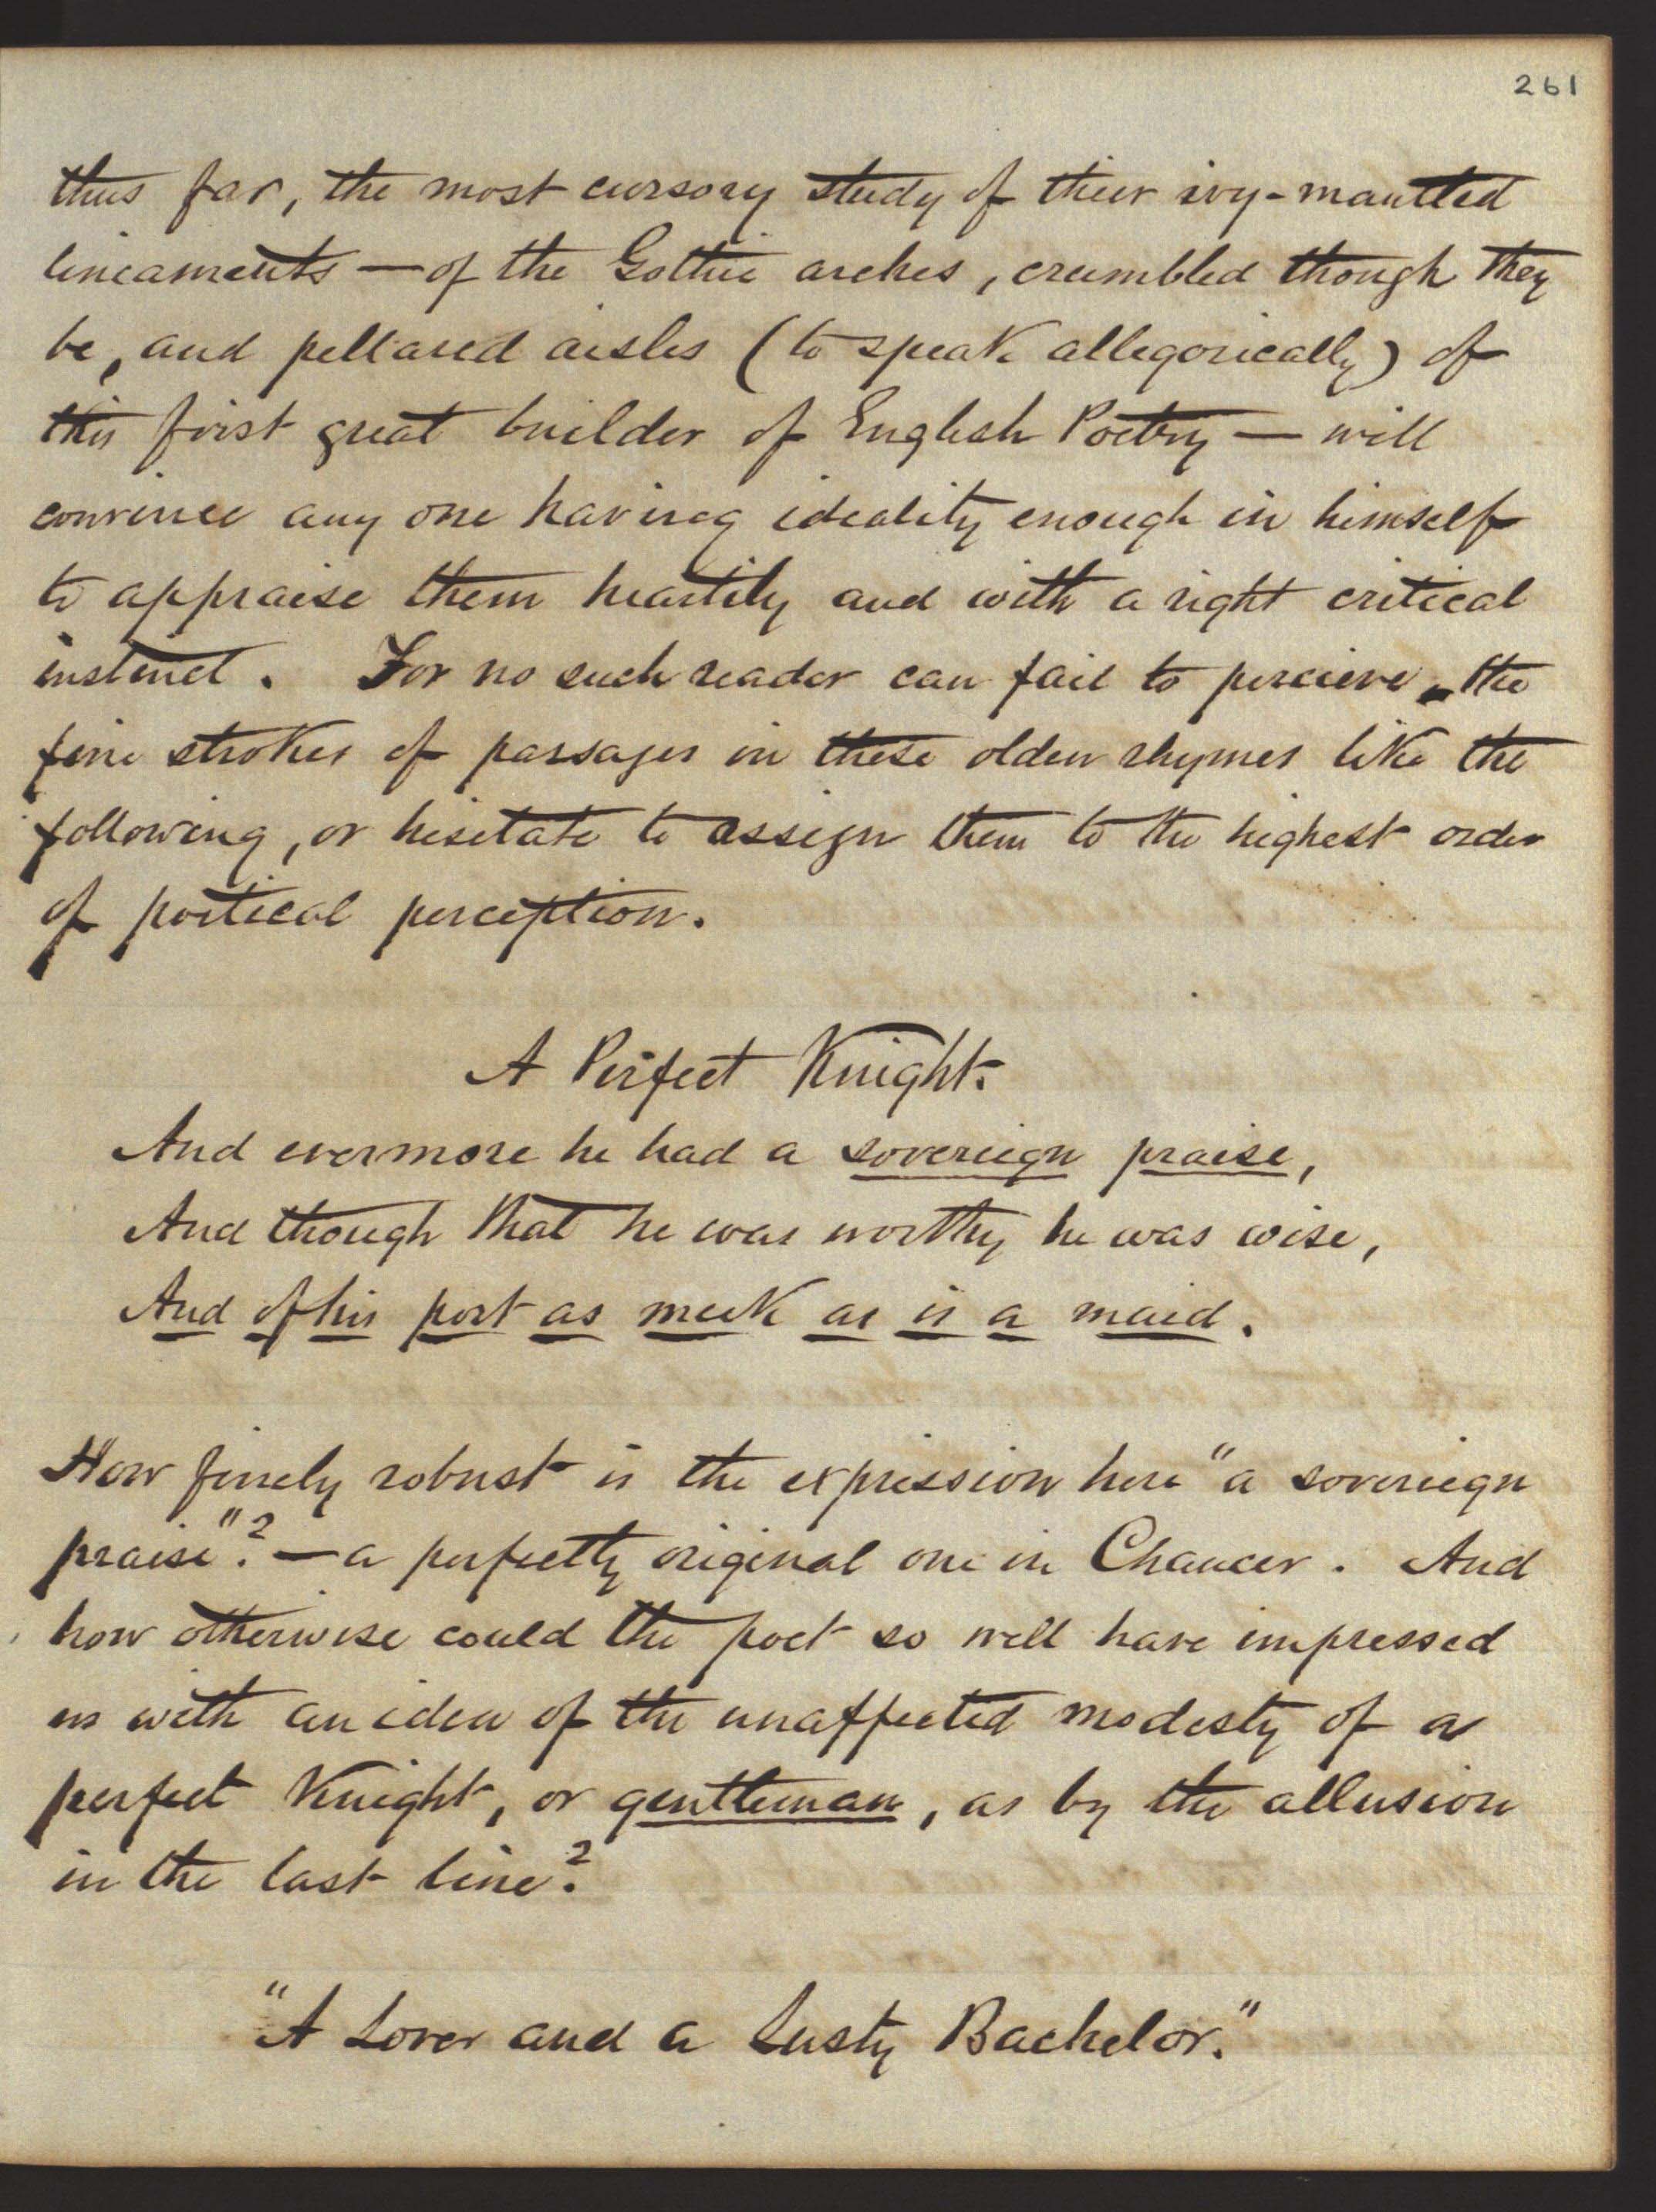 261
thus far, the most cursory study of their ivy-mantled
lineaments — of the Gothic arches, crumbled though they
be, and pillared aisles (to speak allegorically) of
this first great builder of English Poetry — will
convince any one having ideality enough in himself
to appraise them heartily and with a right critical
instinct. For no such reader can fail to percieve the
fine strokes of passages in these olden rhymes like the
following, or hesitate to assign them to the highest order
of poetical perception.
A Perfect Knight.
And evermore he had a sovereign praise,
And though that he was worthy he was wise,
And of his port as meek as is a maid.
How finely robust is the expression here "a sovereign
praise"? — a perfectly original one in Chaucer. And
how otherwise could the poet so well have impressed
us with an idea of the unaffected modesty of a
perfect Knight, or gentleman, as by the allusion
in the last line?
"A Lover and a Lusty Bachelor."